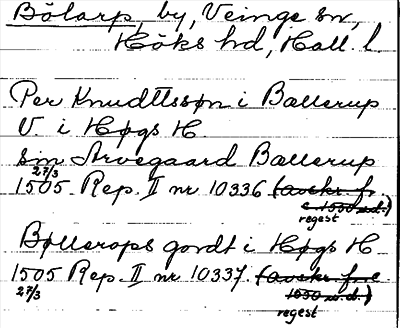 Bölarp, by, Veinge sn,
Höks hd, Hall. l.
Per Knudttssøn i Ballerup
V. i Høgs H.
sin Arvegaard Ballerup
27/3
1505 Rep. II nr 10336 (avskr. fr.
c. 1550 u.d.)
regest
Bøllerops gordt i Høgs H
1505 Rep. II nr 10337. (avskr. fr. c
27/3 1050 u.d.)
regest